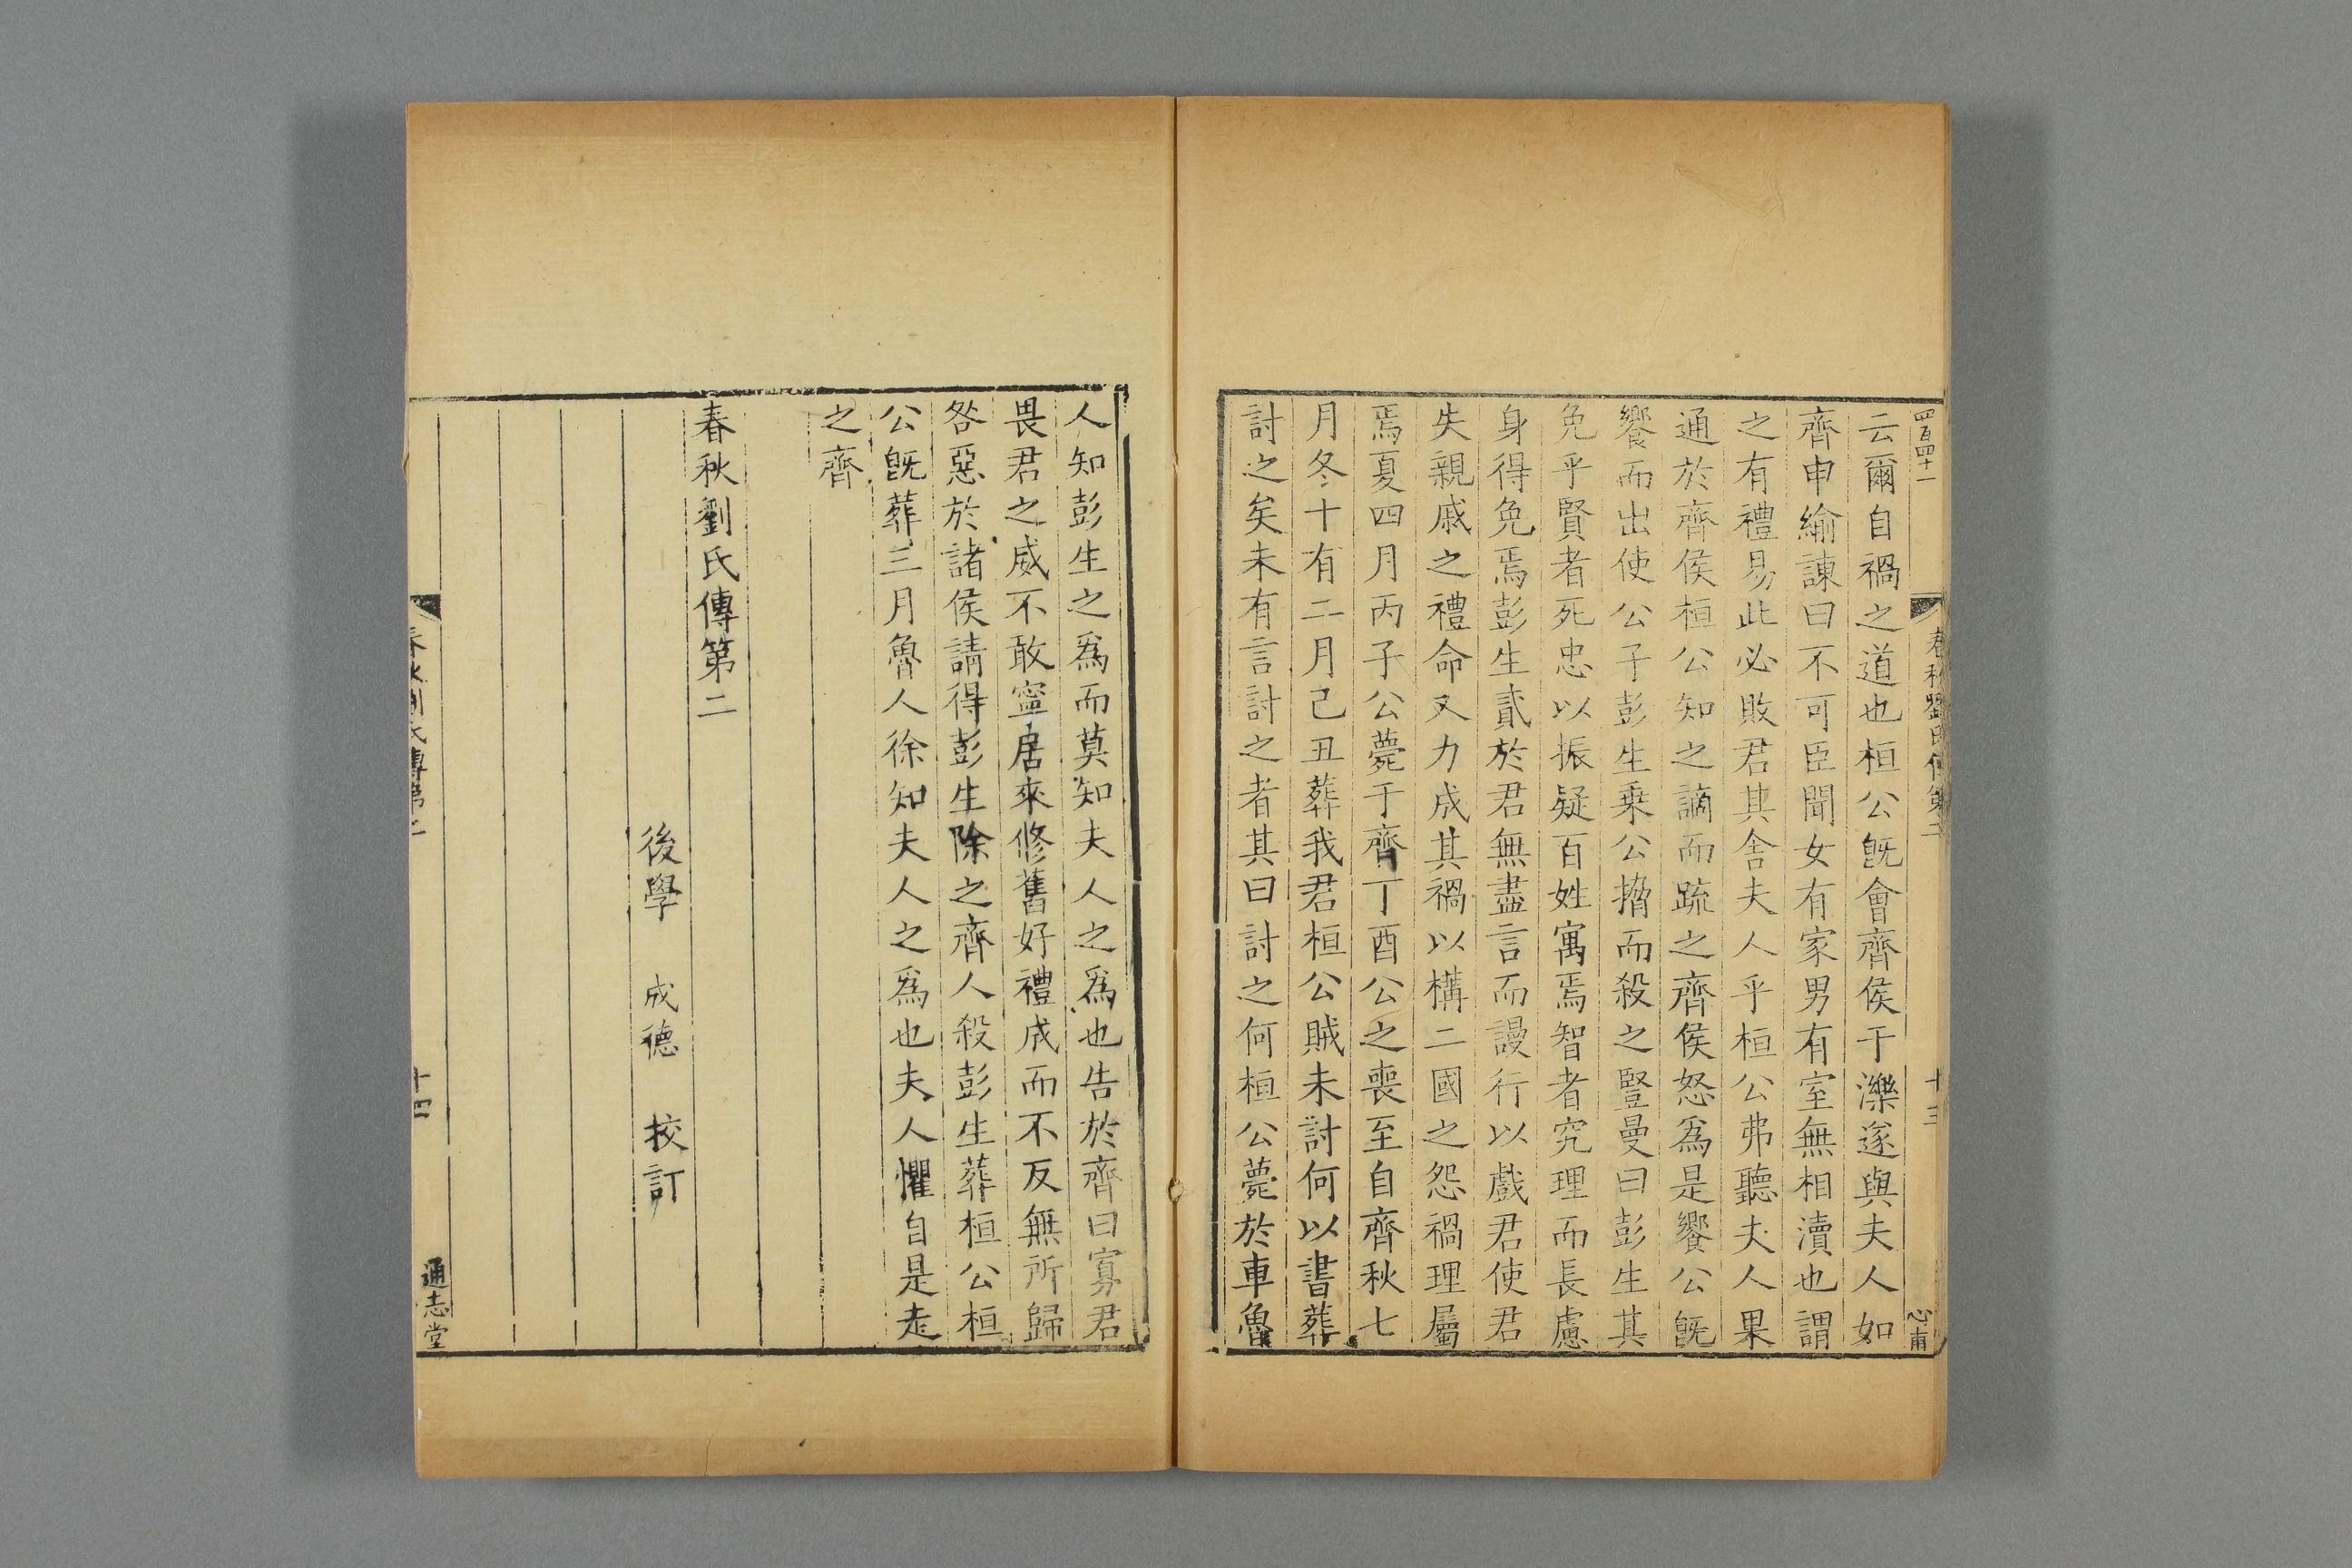 四百四十一
春秋劉氏傳第二
十三
心甫
云爾自禍之道也桓公旣會齊侯于濼遂與夫人如
齊申繻諫曰不可臣聞女有家男有室無相瀆也謂
之有禮易此必敗君其舍夫人乎桓公弗聽夫人果
通於齊侯桓公知之謫而䟽之齊侯怒爲是饗公旣
饗而出使公子彭生乗公搚而殺之豎曼曰彭生其
免乎賢者死忠以振疑百姓寓焉智者究理而長慮
身得免焉彭生貳於君無盡言而謾行以戲君使君
失親戚之禮命又力成其禍以構二國之怨禍理屬
焉夏四月丙子公薨于齊丁酉公之喪至自齊秋七
月冬十有二月己丑葬我君桓公賊未討何以書葬
討之矣未有言討之者其曰討之何桓公薨於車魯
人知彭生之爲而莫知夫人之爲也告於齊曰寡君
畏君之威不敢寧居來修舊好禮成而不反無所歸
咎惡於諸侯請得彭生除之齊人殺彭生葬桓公桓
公旣葬三月魯人徐知夫人之爲也夫人懼自是走
之齊
春秋劉氏傳第二
後學 成德 校訂
春秋劉氏傳第二
十四
通志堂